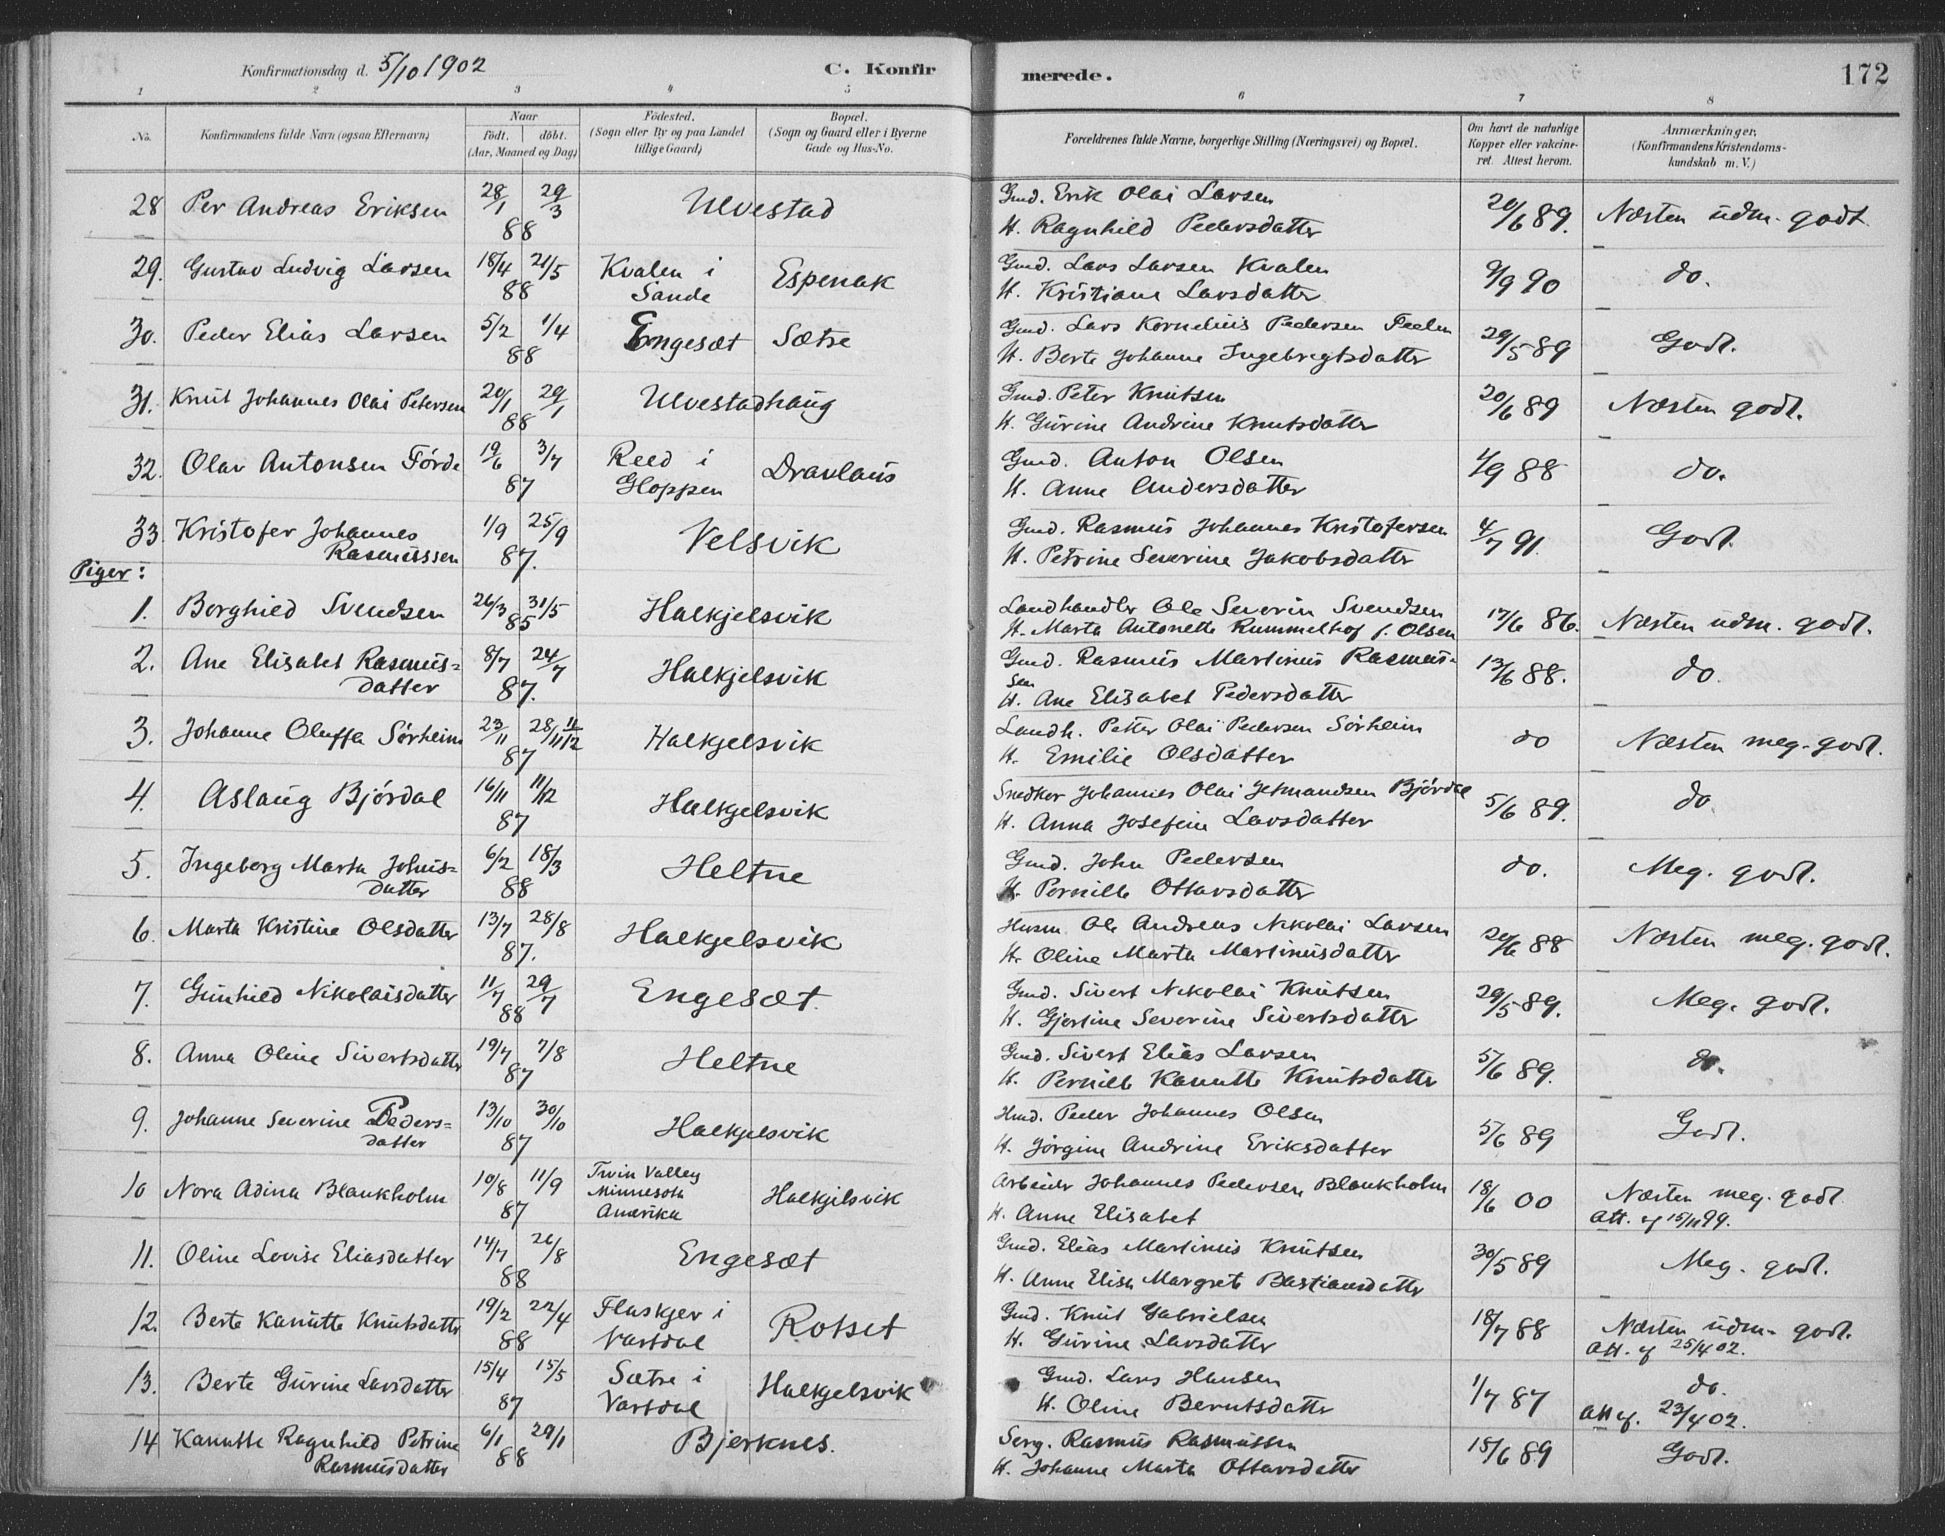 Konfirmationsdag d. 5/10 1902 C. Konfirmerede. 172
1 2 3 4 5 6 7 8
No. Konfirmandens fulde Navn (ogsaa Efternavn) Naar født. døbt. (Aar, Maaned og Dag) Fødested. (Sogn eller By og paa Landet tillige Gaard) Bopæl. (Sogn og Gaard eller i Byerne Gade og Hus-No. Forældrenes fulde Navne, borgerlige Stilling (Næringsvei) og Bopæl. Om havt de naturlige Kopper eller vakcineret. Attest herom. Anmærkninger, (Konfirmandens Kristendomskundskab m. V.)
28 Per Andreas Eriksen 28/1 29/3 88 Ulvestad Gmd. Erik Olai Larsen 20/6 89. Næsten udm. godt
H. Ragnhild Pedersdatter
29. Gustav Ludvig Larsen 18/4 21/5 88 Kvalen i Sande Espenak Gmd. Lars Larsen Kvalen 9/9 90 do.
H. Kristiane Larsdatter
30. Peder Elias Larsen 5/2 1/4 88 Engesæt Sætre Gmd. Lars Kornelius Pedersen 29/5 89 Godt.
H. Berte Johanne Ingebregtsdatter
31. Knut Johannes Olai Petersen 20/1 29/1 88 Ulvestadhaug Gmd. Peter Knutsen 20/6 89 Næsten godt.
H. Gurine Andrine Knutsdatter
32. Olav Antonsen Førde 19/6 3/7 87 Reed i Gloppen Dravlaus Gmd. Anton Olsen 1/9 88 do.
H. Anne Andersdatter
33. Kristofer Johannes Rasmussen 1/9 25/9 87. Velsvik Gmd. Rasmus Johannes Kristofersen 4/7 91. Godt.
H. Petrine Severine Jakobsdatter
Piger:
1. Borghild Svendsen 26/3 31/5 85 Halkjelsvik Landhandler Ole Severin Svendsen 17/6 86. Næsten udm. godt.
H. Marta Antonette Rummelhof f. Olsen
2. Ane Elisabet Rasmusdatter 8/7 24/7 87. Halkjelsvik Gmd. Rasmus Martinus Rasmussen 13/6 88. do.
H. Ane Elisabet Pedersdatter
3. Johanne Oluffa Sørheim 23/11 28/11 11/12 87 Halkjelsvik Landh. Petter Olai Pedersen Sørheim do Næsten meg. godt.
H. Emilie Olsdatter
4. Aslaug Bjørdal 16/11 11/12 87 Halkjelsvik Snedker Johannes Olai Jetmundsen Bjørdal 5/6 89. do
H. Anna Josefine Larsdatter
5. Ingeborg Marta Johnsdatter 6/2 18/3 88 Heltne Gmd. John Pedersen do. Meg. godt.
H. Pernille Ottarsdatter
6. Marta Kristine Olsdatter 13/7 28/8 87. Halkjelsvik Husm Ole Andreas Nikolai Larsen 20/6 88 Næsten meg. godt.
H. Oline Marta Martinusdatter
7. Gunhild Nikolaisdatter 11/7 29/7 88 Engesæt. Gmd. Sivert Nikolai Knutsen 29/5 89. Meg. godt.
H. Gjertine Severine Sivertsdatter
8. Anna Oline Sivertsdatter 19/7 7/8 87 Heltne Gmd. Sivert Elias Larsen 5/6 89. do.
H. Pernille Kanutte Knutsdatter
9. Johanne Severine Pedersdatter 13/10 30/10 87 Halkjelsvik Hmd. Peder Johannes Olsen 5/6 89 Godt.
H. Jørgine Andrine Eriksdatter
10 Nora Adina Blankholm 10/8 11/9 87 Twin Valley Minnesota Amerika Halkjelsvik Arbeider Johannes Pedersen Blankholm 18/6 00 Næsten meg. godt
H. Anne Elisabet Att. af 15/11 99.
11. Oline Lovise Eliasdatter 14/7 26/8 88 Engesæt Gmd. Elias Martinus Knutsen 30/5 89 Meg. godt.
H. Anne Elise Margrete Bastiansdatter
12. Berte Kanutte Knutsdatter 19/2 22/4 88 Flaskjer i Vartdal Rotset Gmd. Knut Gabrielsen 18/7 88 Næsten udm. godt.
H. Gurine Larsdatter Att. af 25/4 02.
13. Berte Gurine Larsdatter 15/4 15/5 87 Sætre i Vartdal Halkjelsvik Gmd. Lars Hansen 1/7 87 do.
H. Oline Berntsdatter Att af. 23/4 02.
14 Kanutte Ragnhild Petrine Rasmusdatter 6/1 29/1 88 Bjerknes. Serg. Rasmus Rasmussen 15/6 89 Godt.
H. Johanne Marta Ottarsdatter